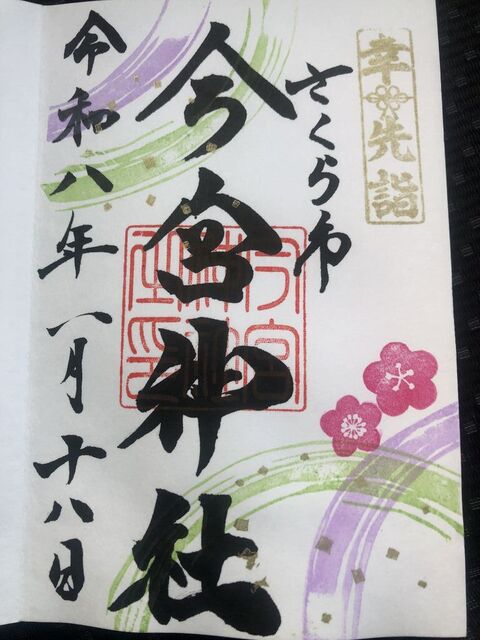 幸先詣
さくら市
今宮神社
令和八年一月十八日